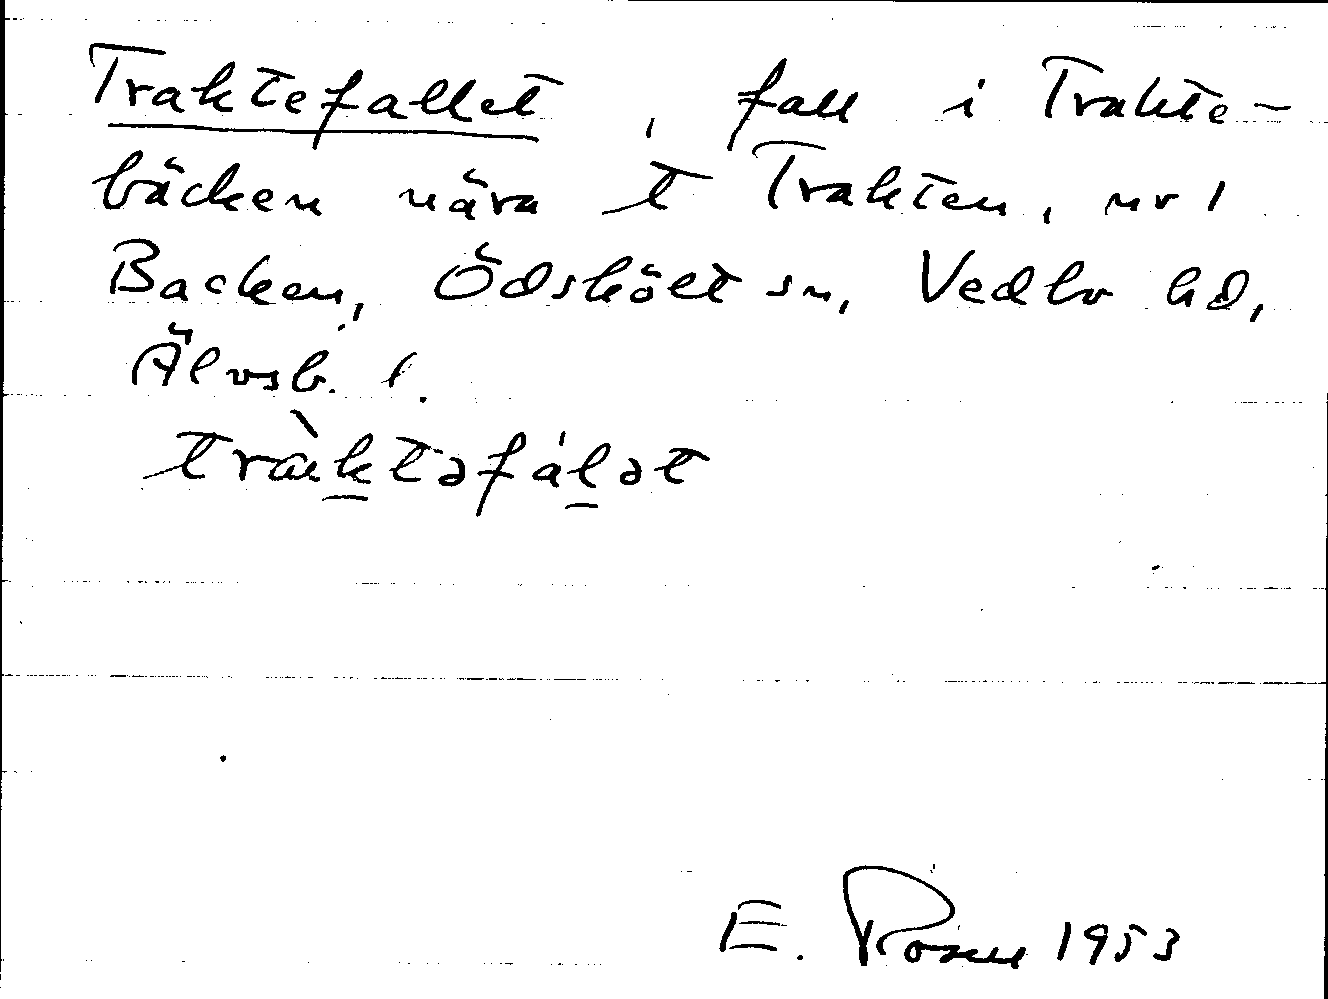 Traktefallet, fall i Trakte-
bäcken nära t Trakten, nr 1
Backen, Ödsköլt sn, Vedbo hd,
Älvsb. l.
tràktəfálət
E. Rosen 1953